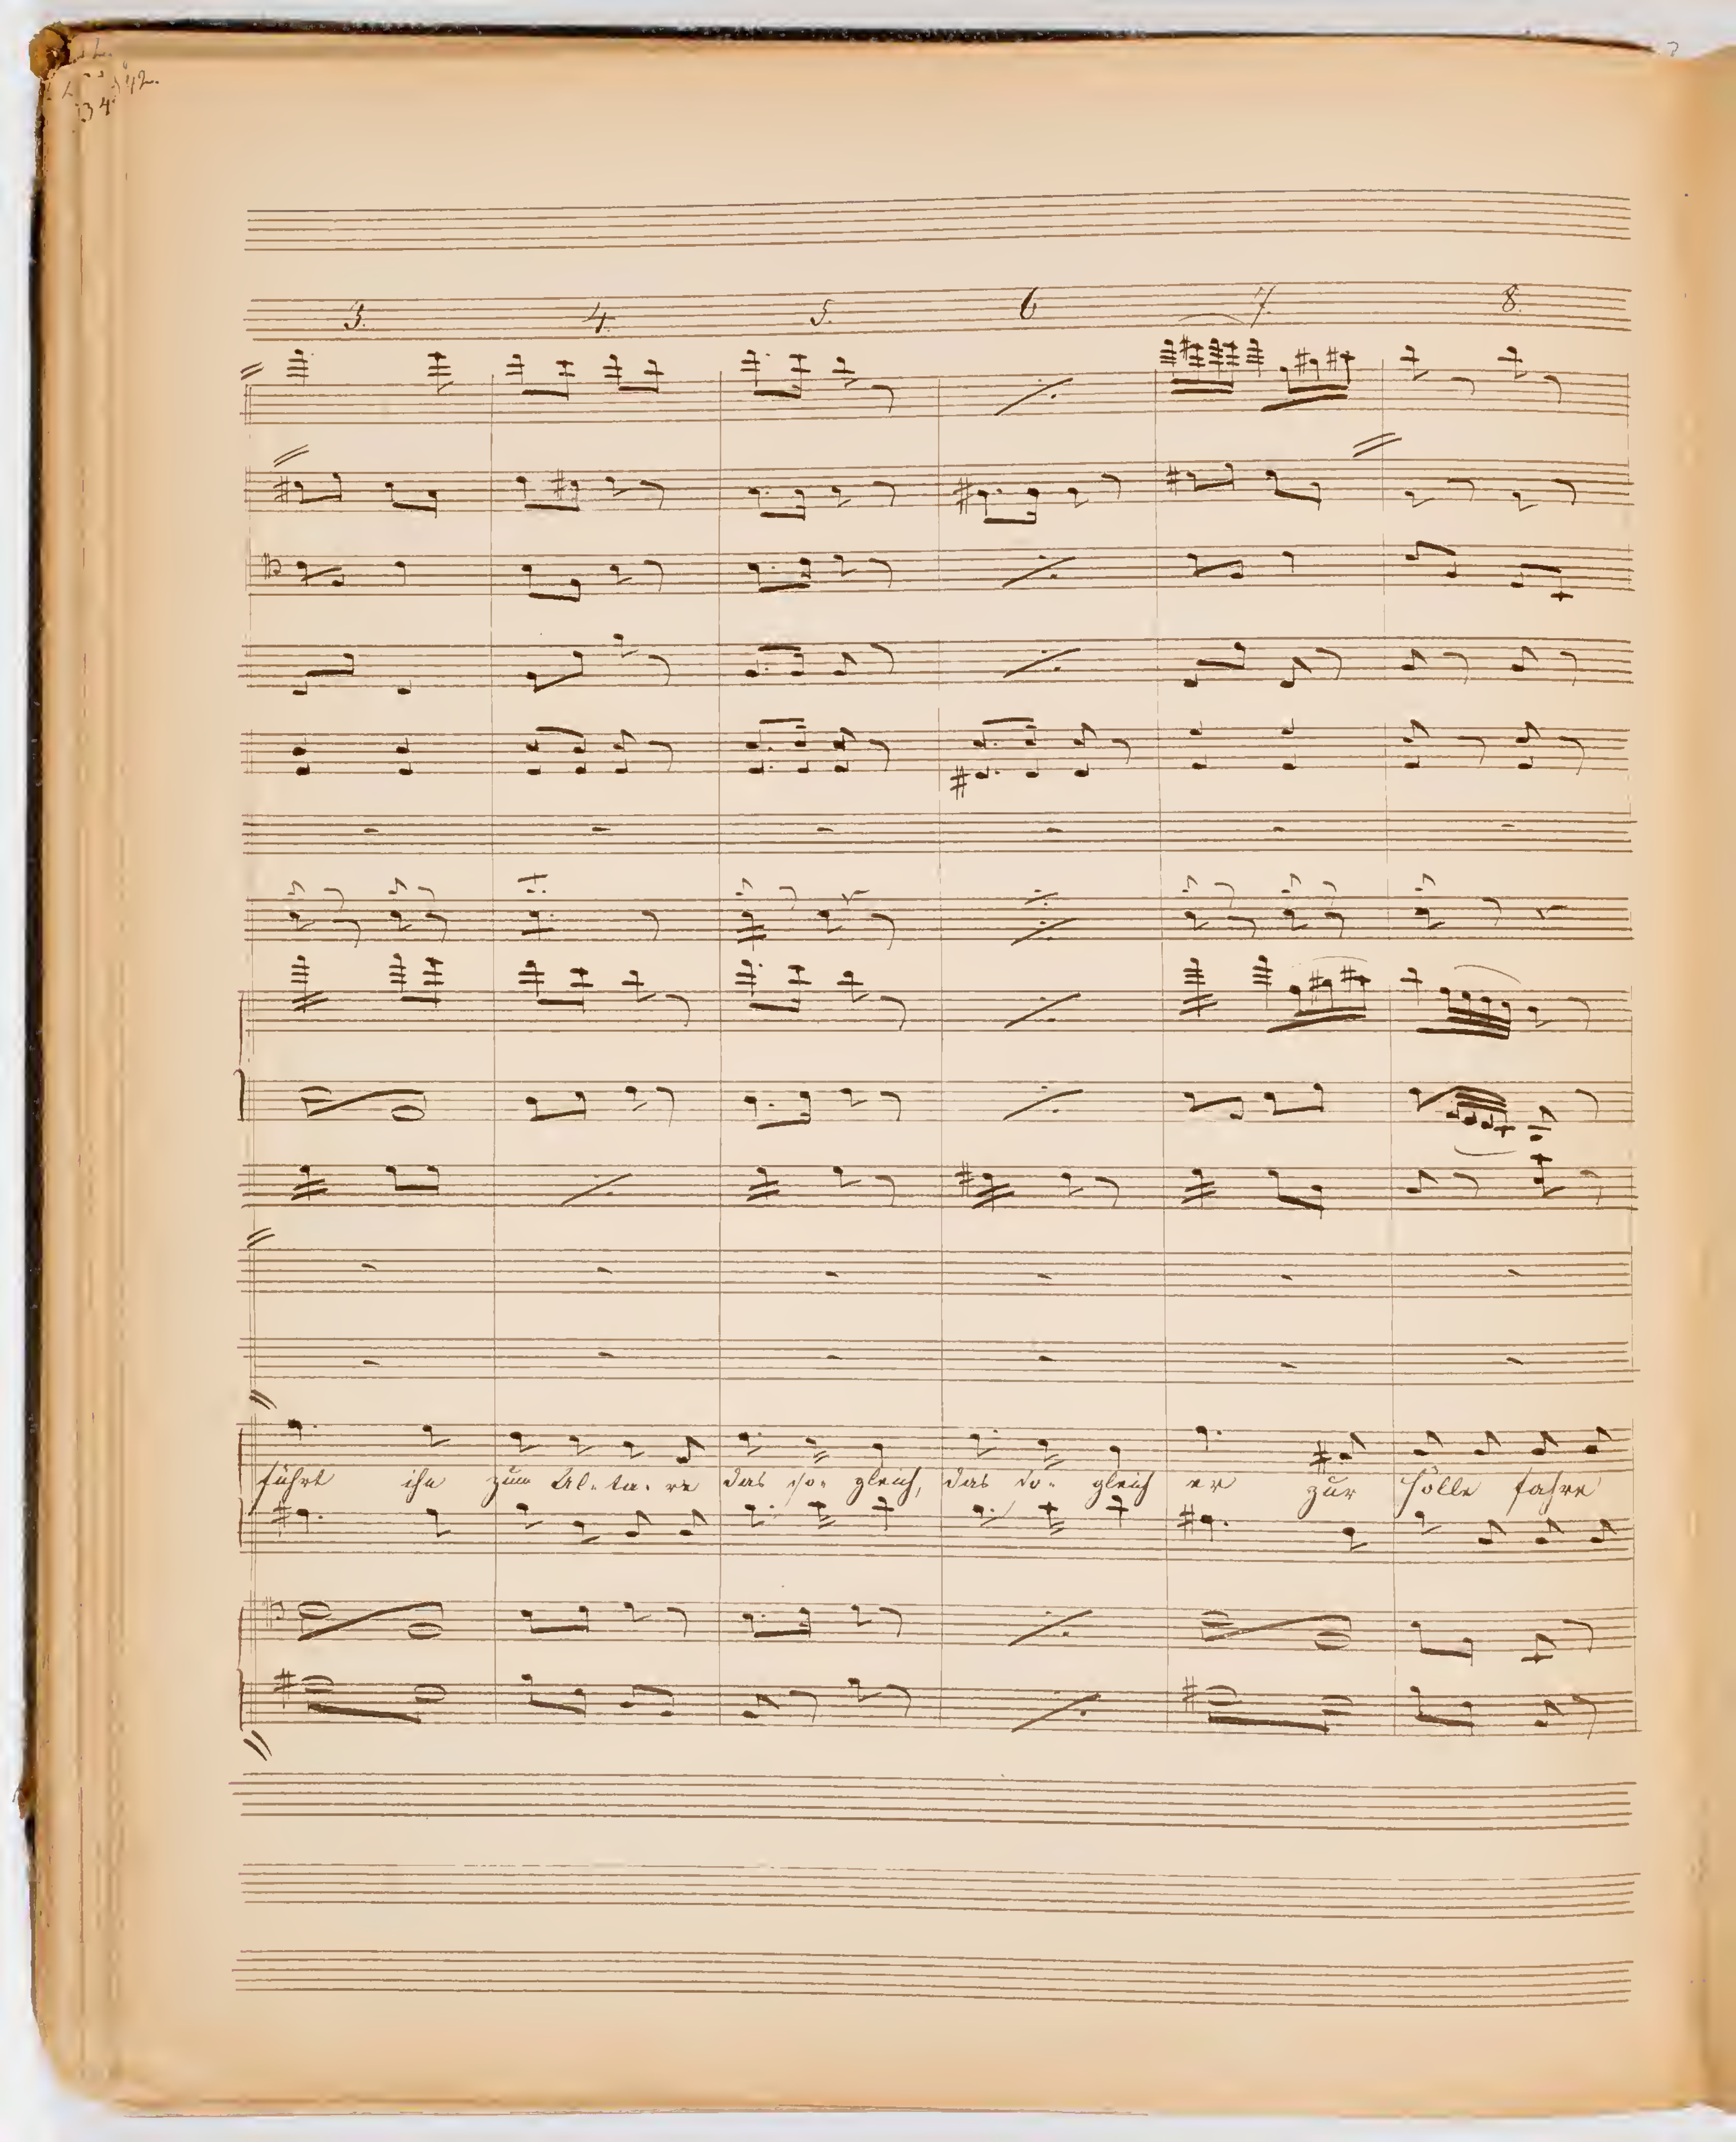 3. 4. 5. 6 7. 8.
führt ihn zum Al-ta-re das so-gleich, das so-gleich er zur Hölle fahre